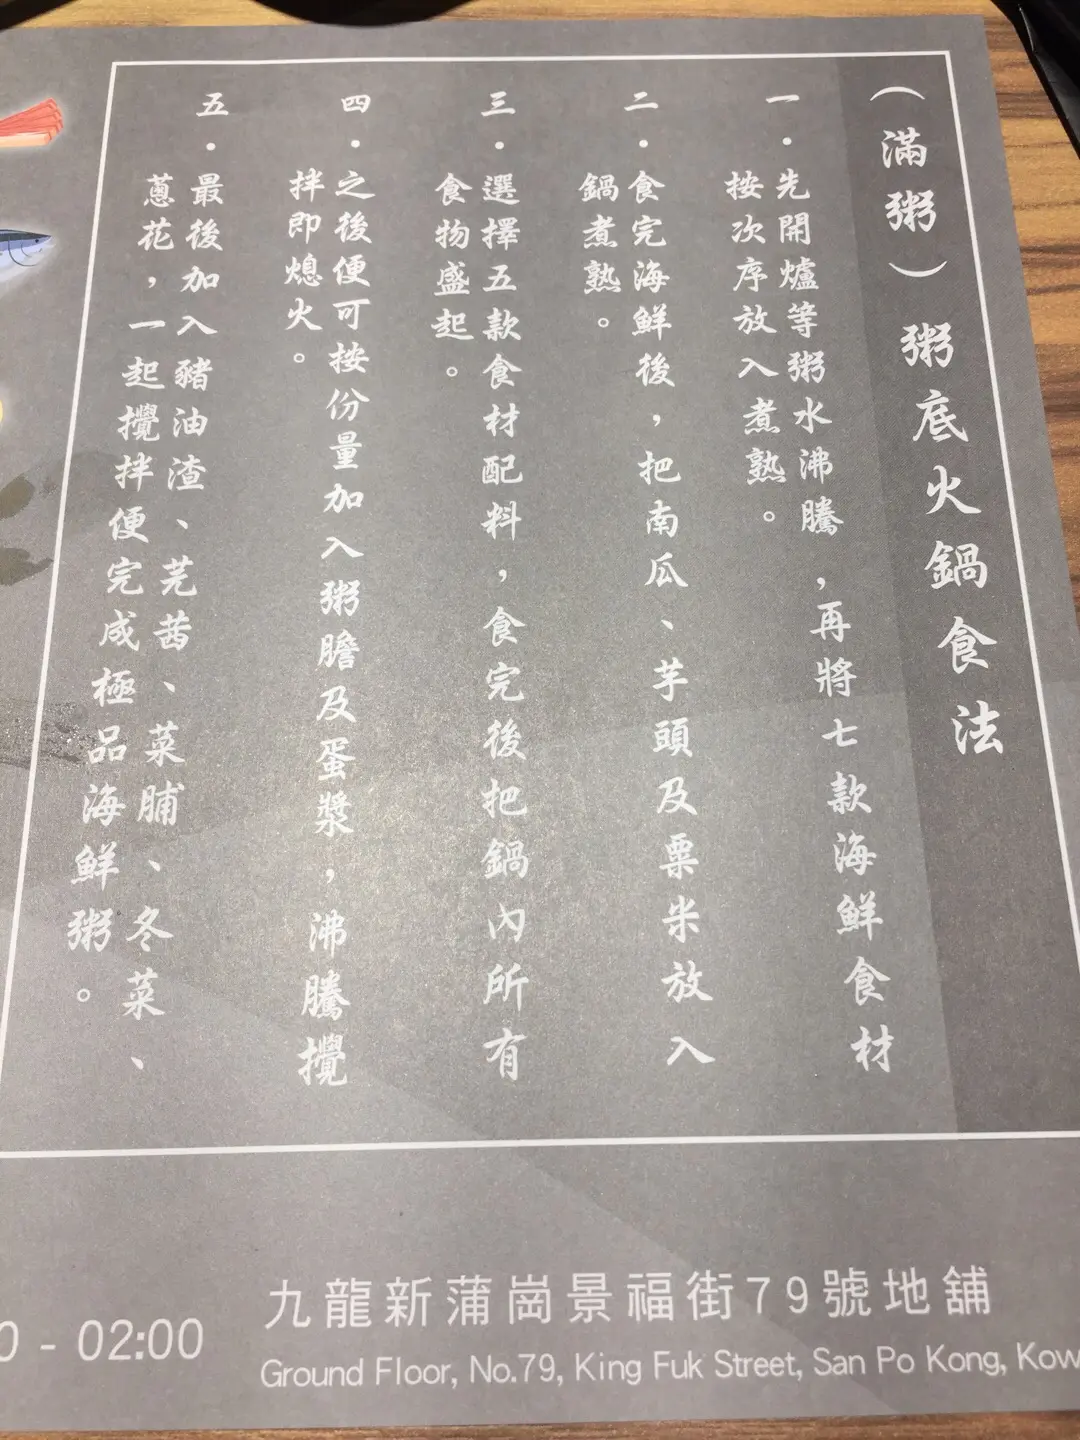 （滿粥）粥底火鍋食法
一．先開爐等粥水沸騰，再將七款海鮮食材
按次序放入煮熟。
二．食完海鮮後，把南瓜、芋頭及粟米放入
鍋煮熟。
三．選擇五款食材配料，食完後把鍋內所有
食物盛起。
四．之後便可按份量加入粥膽及蛋漿，沸騰攪
拌即熄火。
五．最後加入豬油渣、芫茜、菜脯、冬菜、
蔥花，一起攪拌便完成極品海鮮粥。
0 - 02:00
九龍新蒲崗景福街79號地舖
Ground Floor, No.79, King Fuk Street, San Po Kong, Kow